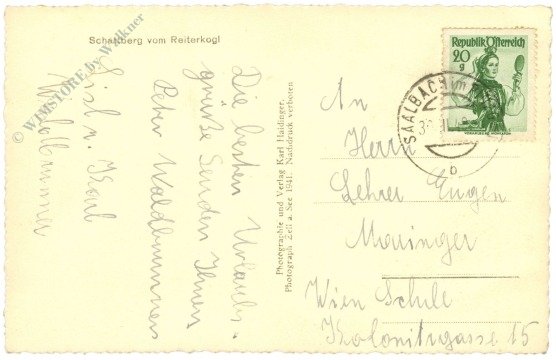 Schattberg vom Reiterkogl
© WIMSTORE by Walkner
Die besten Urlaubs-
grüße Senden Ihnen
Peter Waldbrunner
Lisl u. Karl
Photographie und Verlag Karl Haidinger,
Photograph Zell a. See 1941. Nachdruck verboten
Republik Österreich
20
g
SAALBACH
b
An
Herrn
Lehrer Eugen
Mauinger
Wien Schule
Kolonitzgasse 15